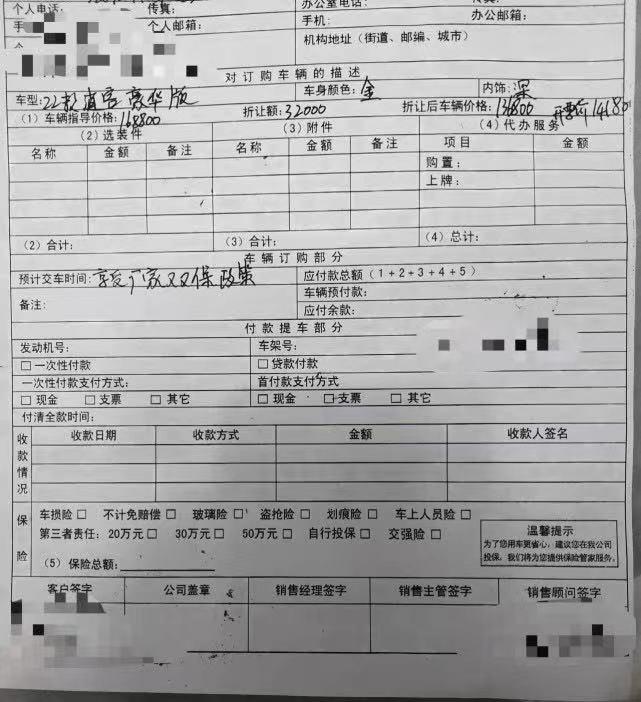 个人电话: 传真: 办公室电话: 传真:
手 个人邮箱: 手机: 办公邮箱:
机构地址（街道、邮编、城市）
对订购车辆的描述
车型:22款 豪华版 车身颜色: 金 内饰: 深
（1）车辆指导价格:168800 折让额:32000 折让后车辆价格:136800 开票价
（2）选装件 （3）附件 （4）代办服务
名称 金额 备注 名称 金额 备注 项目 金额
购置:
上牌:
（2）合计: （3）合计: （4）总计:
车辆订购部分
预计交车时间:享受厂家双保政策 应付款总额（1+2+3+4+5）
车辆预付款:
备注: 应付余款:
付款提车部分
发动机号: 车架号:
□一次性付款 □贷款付款
一次性付款支付方式: 首付款支付方式
□现金 □支票 □其它 □现金 □支票 □其它
付清全款时间:
收款情况 收款日期 收款方式 金额 收款人签名
保险 车损险□ 不计免赔偿□ 玻璃险□ 盗抢险□ 划痕险□ 车上人员险□
第三者责任: 20万元□ 30万元□ 50万元□ 自行投保□ 交强险□
温馨提示
为了您用车更省心，建议您在我公司
投保，我们将为您提供保险管家服务。
（5）保险总额:
客户签字 公司盖章 销售经理签字 销售主管签字 销售顾问签字